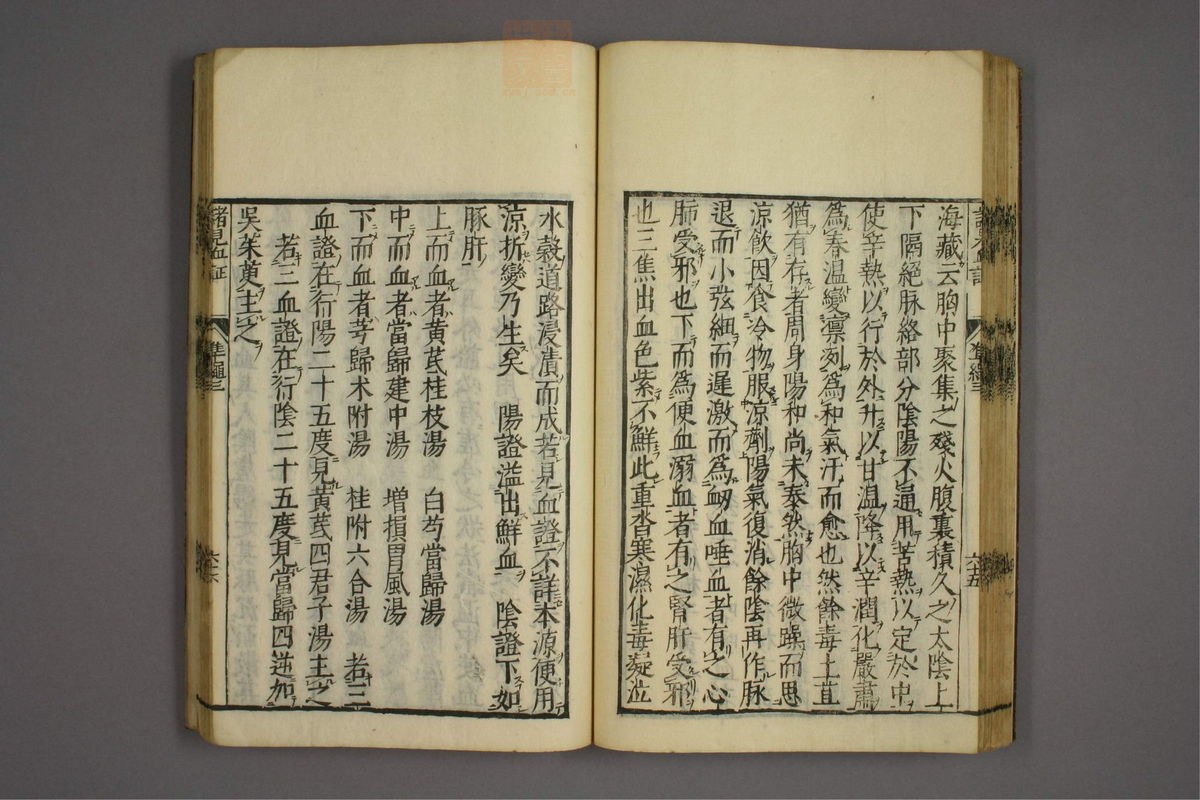 海藏云胸中聚集之殘火腹裏積久之太陰上
下隔絕脉絡部分陰陽不通用苦熱以定於中
使辛熱以行於外升以甘温降以辛潤化嚴肅
為春温變凛冽為和氣汗而愈也然餘毒土苴
猶有存者周身陽和尚未泰然胸中微躁而思
涼飲因食冷物服涼劑陽氣復消餘陰再作脉
退而小弦細而遲激而為衂血唾血者有之心
肺受邪也下而為便血溺血者有之腎肝受邪
也三焦出血色紫不鮮此重沓寒濕化毒凝泣
水穀道路浸漬而成若見血證不詳本源便用
涼折變乃生矣　陽證溢出鮮血　陰證下如
豚肝
上而血者黃芪桂枝湯　白芍當歸湯
中而血者當歸建中湯　増損胃風湯
下而血者芎歸术附湯　桂附六合湯　若三
血證在行陽二十五度見黃芪四君子湯主之
若三血證在行陰二十五度見當歸四逆加
吳茱萸主之
諸見血証
準繩三
六十六